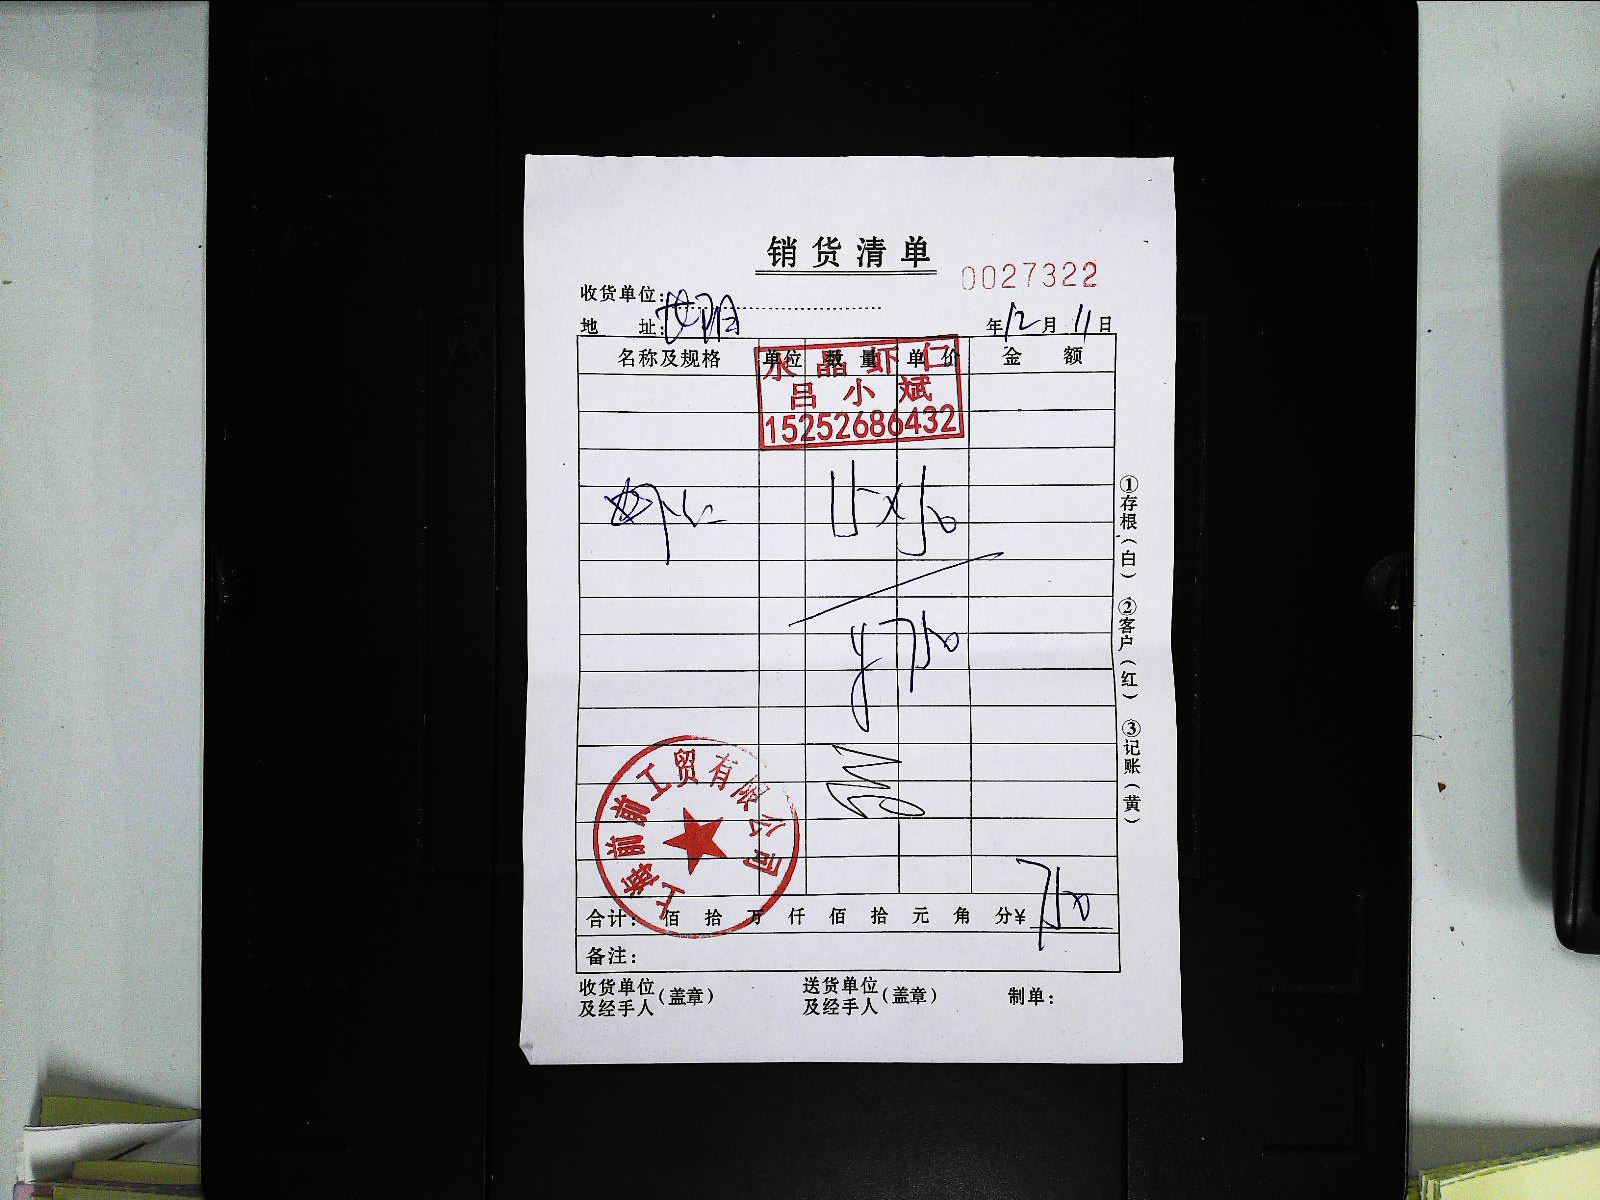 销货清单
0027322
收货单位：
地 址：
年12月11日
名称及规格 单位 数量 单价 金额
水晶虾仁
吕小斌
15252686432
虾仁 15×50
¥750
上海前前工贸有限公司
合计： 佰 拾 万 仟 佰 拾 元 角 分¥ 750
备注：
收货单位及经手人（盖章） 送货单位及经手人（盖章） 制单：
①存根（白） ②客户（红） ③记账（黄）